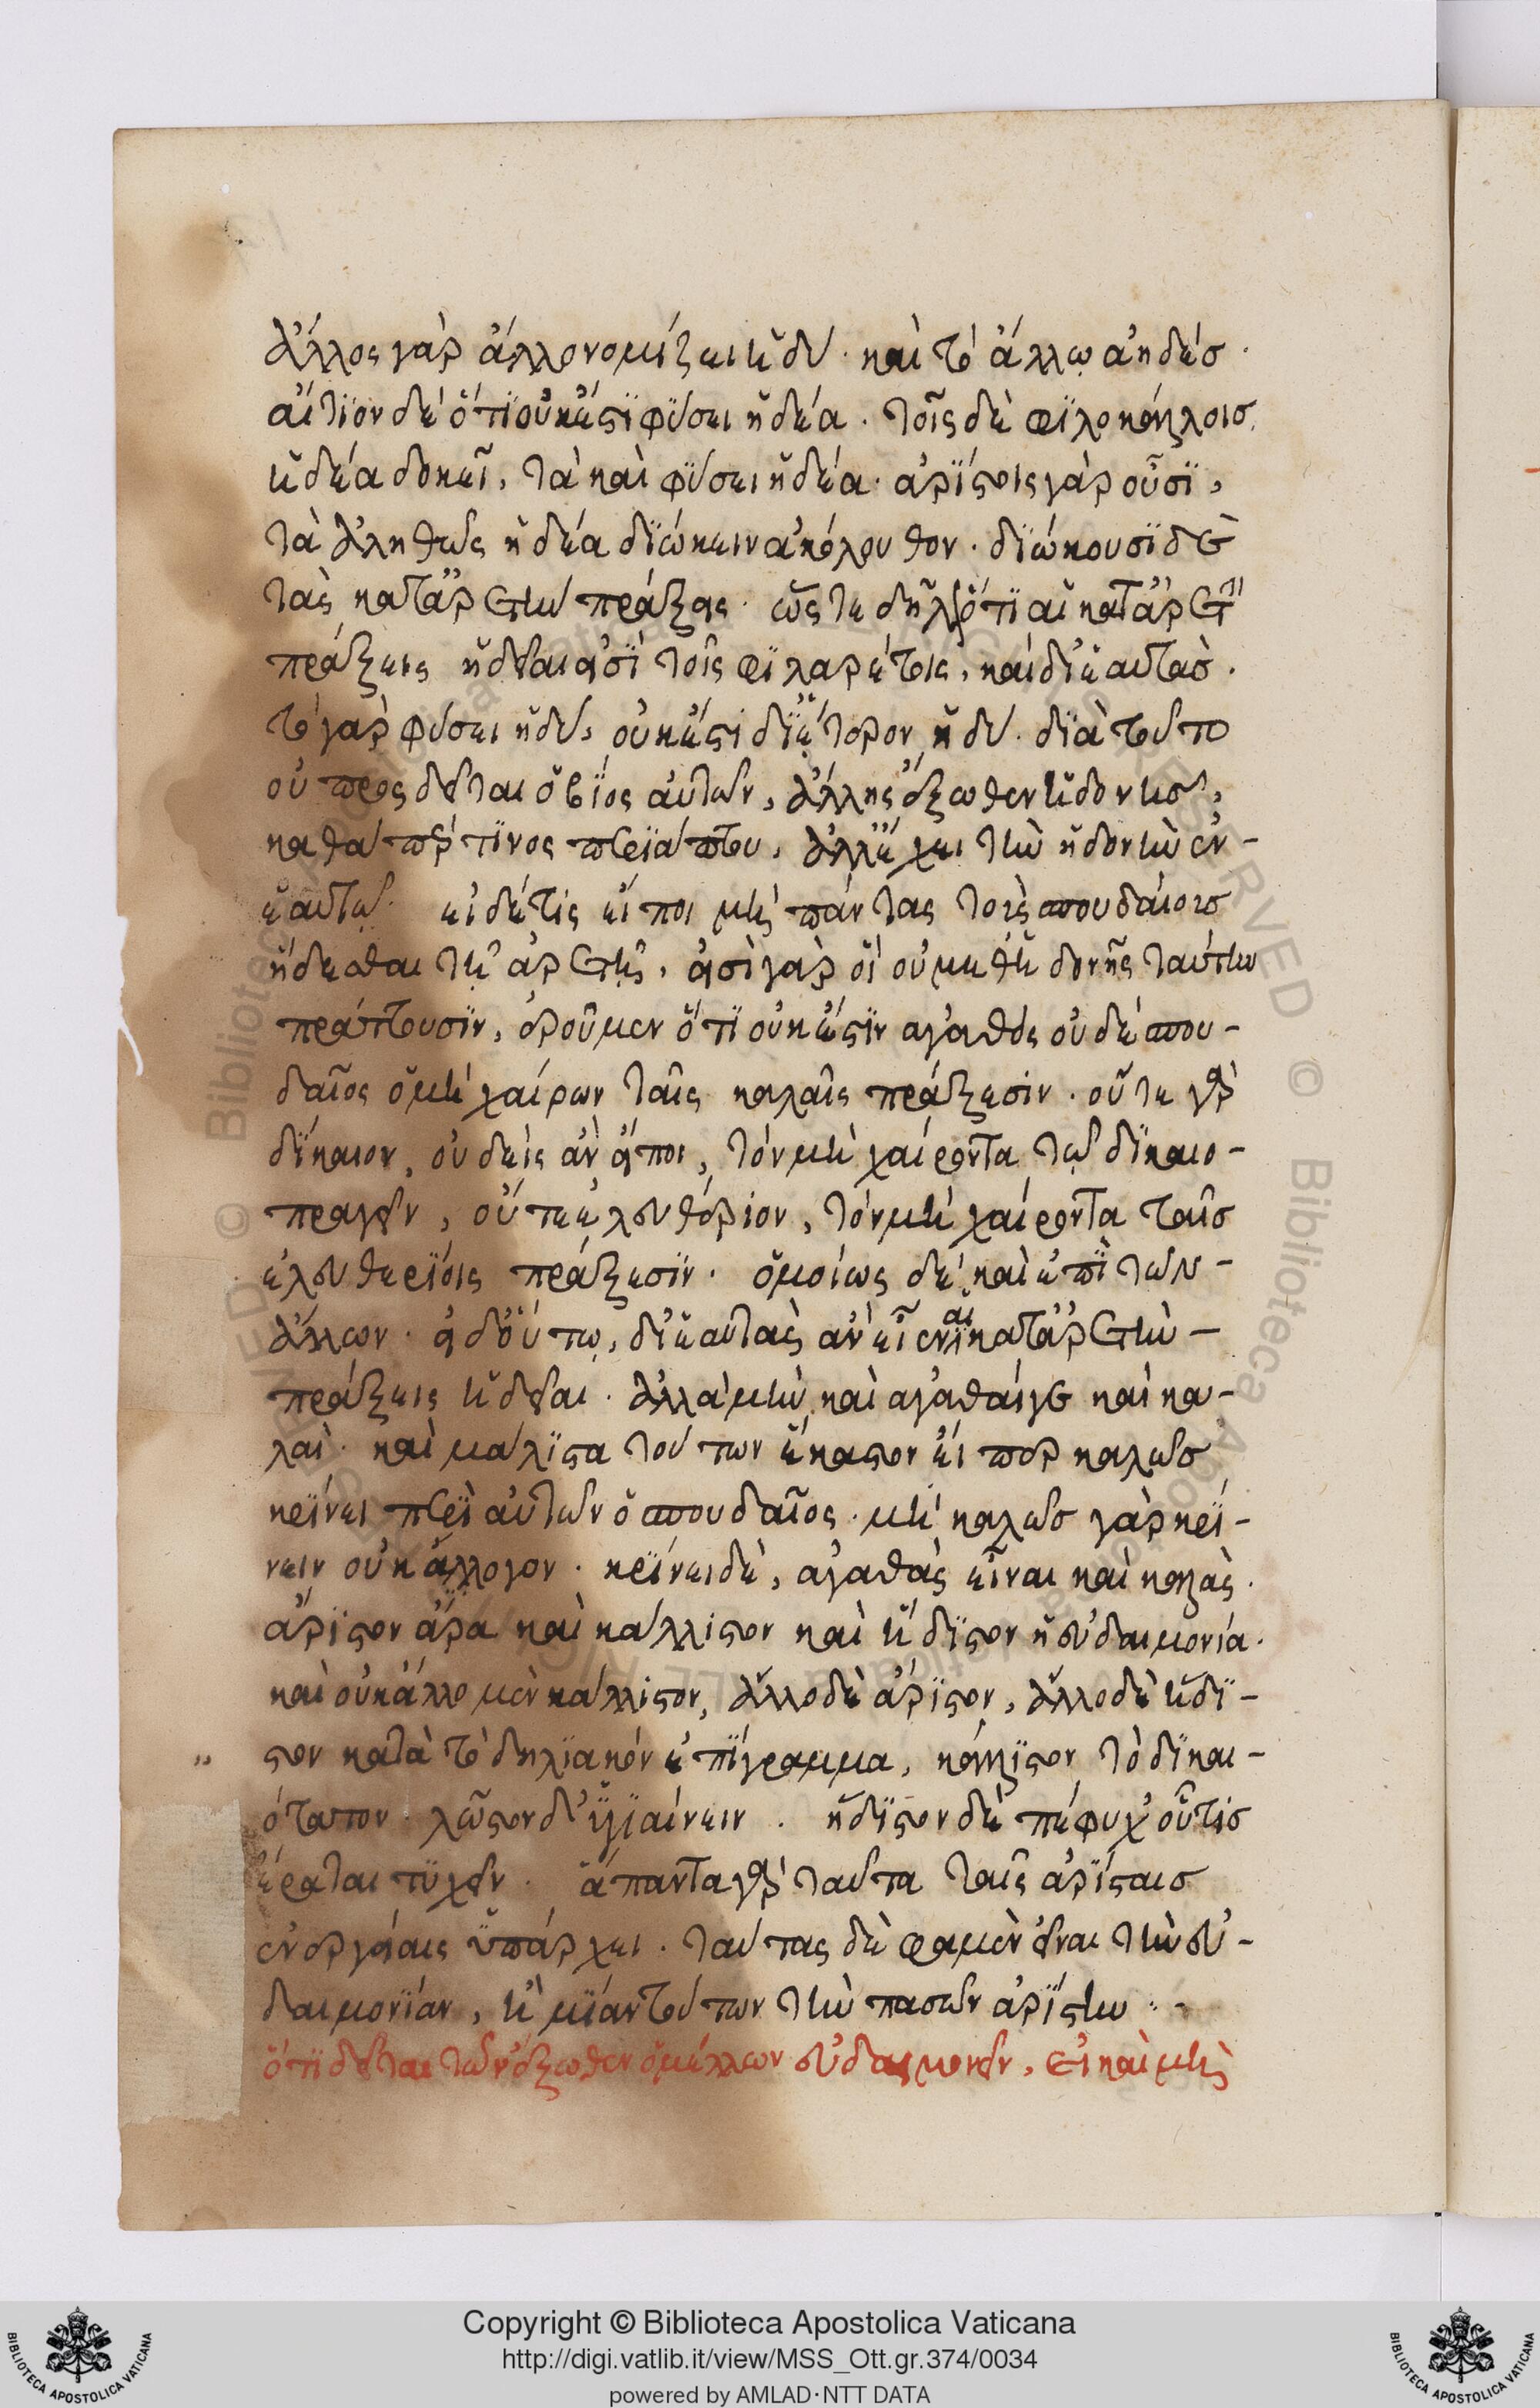 ἄλλος γὰρ ἄλλο νομίζει ἡδύ· καὶ τὸ ἄλλῳ ἀηδές·
αἴτιον δὲ ὅτι οὐκ ἔστι φύσει ἡδέα· τοῖς δὲ φιλοκάλοις
ἡδέα δοκεῖ, τὰ καὶ φύσει ἡδέα· ἀρίστοις γὰρ οὖσι,
τὰ ἀληθῶς ἡδέα διώκειν ἀκόλουθον· διώκουσι δὲ
τὰς κατ' ἀρετὴν πράξεις· ὥστε δῆλον ὅτι αἱ κατ' ἀρετὴν
πράξεις ἡδεῖαι εἰσὶ τοῖς φιλαρέτοις, καὶ δι' ἑαυτάς·
τὸ γὰρ φύσει ἡδύ, οὐκ ἔστι δι' ἕτερον ἡδύ· διὰ τοῦτο
οὐ προσδεῖται ὁ βίος αὐτῶν, ἄλλης ἔξωθεν ἡδονῆς,
καθάπερ τινὸς περιάπτου, ἀλλ' ἔχει τὴν ἡδονὴν ἐν-
ἑαυτῷ· εἰ δέ τις εἴποι μὴ πάντας τοὺς σπουδαίους
ἥδεσθαι τῇ ἀρετῇ, εἰσὶ γὰρ οἳ οὐ μεθ' ἡδονῆς ταύτην
πράττουσιν, ἐροῦμεν ὅτι οὐκ ἔστιν ἀγαθὸς οὐδὲ σπου-
δαῖος ὁ μὴ χαίρων ταῖς καλαῖς πράξεσιν· οὔτε γὰρ
δίκαιον, οὐδεὶς ἂν εἴποι, τὸν μὴ χαίροντα τῷ δικαιο-
πραγεῖν, οὔτε ἐλευθέριον, τὸν μὴ χαίροντα ταῖς
ἐλευθερίοις πράξεσιν· ὁμοίως δὲ καὶ ἐπὶ τῶν-
ἄλλων· εἰ δ' οὕτω, δι' ἑαυτὰς ἂν εἶεν αἱ κατ' ἀρετὴν-
πράξεις ἡδεῖαι· ἀλλὰ μὴν καὶ ἀγαθαίγε καὶ κα-
λαὶ· καὶ μάλιστα τούτων ἕκαστον εἴπερ καλῶς
κρίνει περὶ αὐτῶν ὁ σπουδαῖος· μὴ καλῶς γὰρ κρί-
νειν οὐκ ἄλλογον· κρίνει δὲ, ἀγαθὰς εἶναι καὶ καλὰς·
ἄριστον ἄρα καὶ κάλλιστον καὶ ἥδιστον ἡ εὐδαιμονία·
καὶ οὐκ ἄλλο μὲν κάλλιστον, ἄλλο δὲ ἄριστον, ἄλλο δὲ ἥδι-
στον κατὰ τὸ δηλιακὸν ἐπίγραμμα, κάλλιστον τὸ δικαι-
ότατον· λῷστον δ' ὑγιαίνειν· ἥδιστον δὲ πέφυχ' οὗ τις
ἐρᾶται τυχεῖν· ἅπαντα γὰρ ταῦτα ταῖς ἀρίσταις
ἐνεργείαις ὑπάρχει· ταύτας δὲ φαμὲν εἶναι τὴν εὐ-
δαιμονίαν, ἢ μίαν τούτων τὴν πασῶν ἀρίστην :-
ὅτι δεῖται τῶν ἔξωθεν ὁ μέλλων εὐδαιμονεῖν, εἰ καὶ μὴ